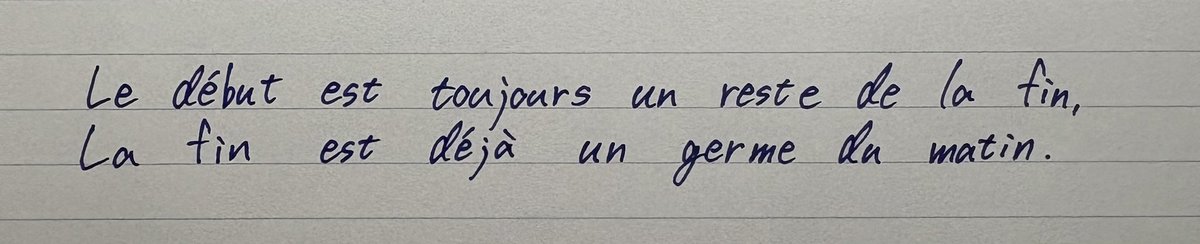 Le début est toujours un reste de la fin,
La fin est déjà un germe du matin.